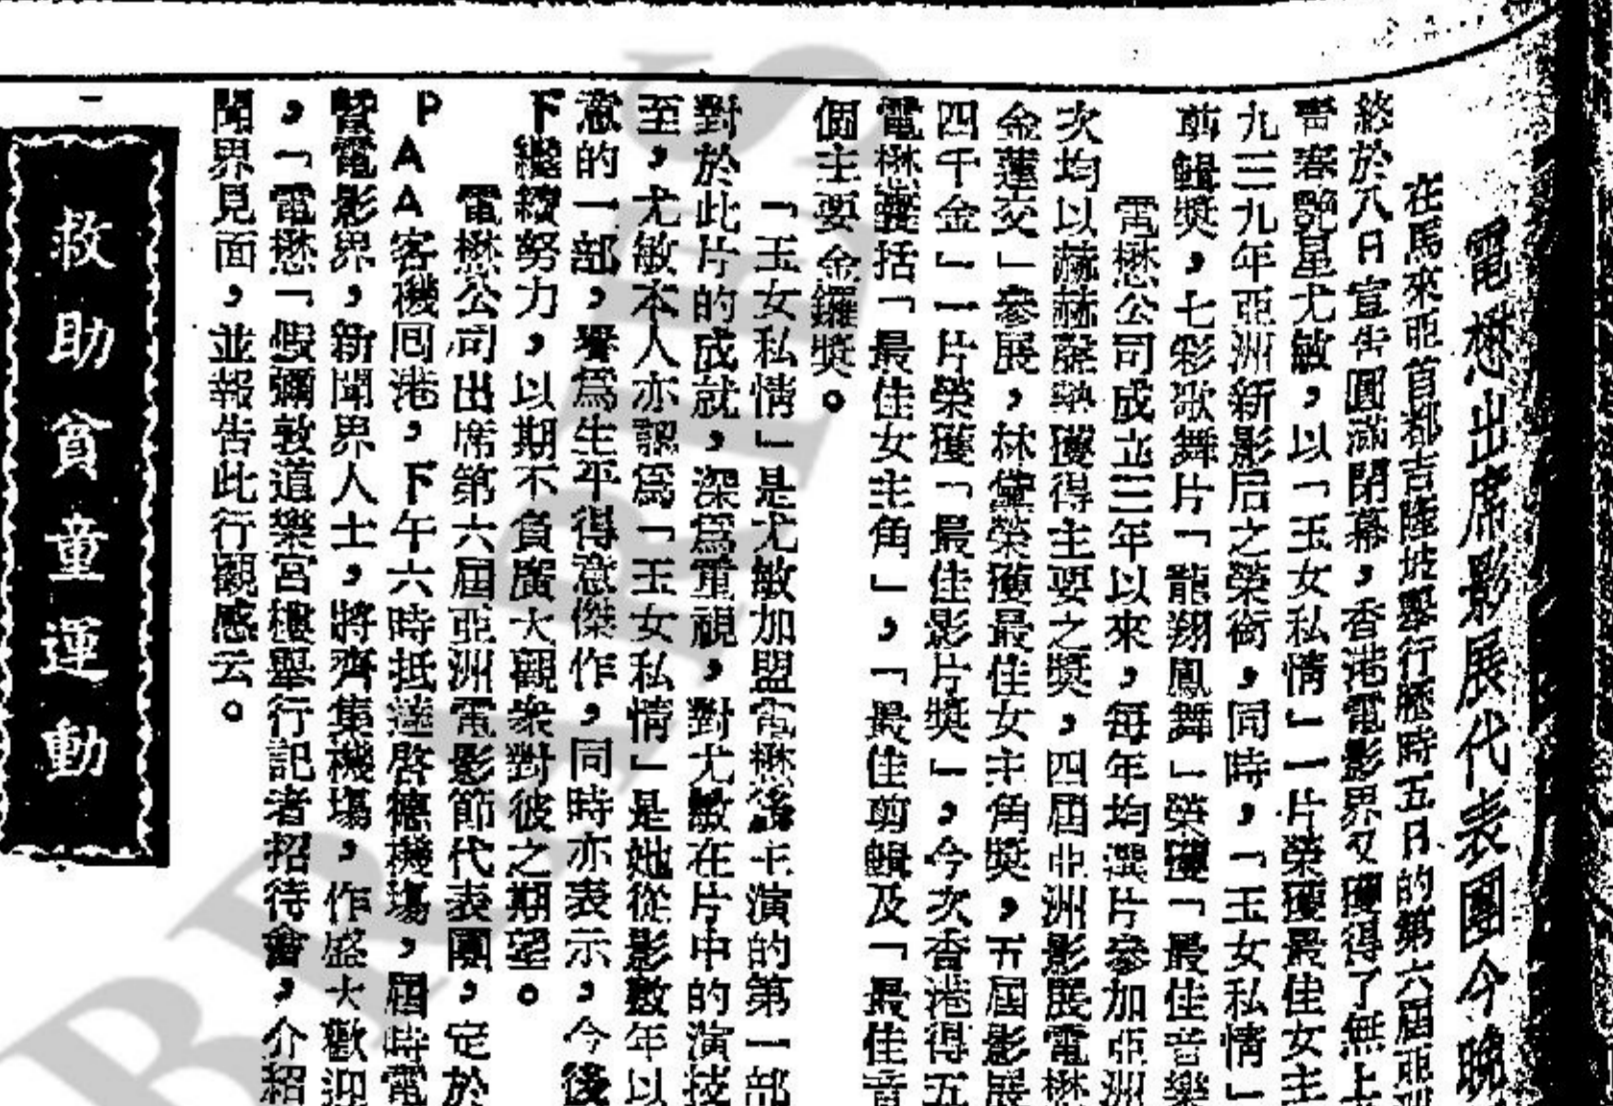 電懋出席影展代表團今晚
在馬來亞首都吉隆坡舉行歷時五日的第六屆亞洲
終於八日宣告圓滿閉幕,香港電影界又獲得了無上
青春艷星尤敏,以「玉女私情」一片榮獲最佳女主
九三九年亞洲新影后之榮銜,同時,「玉女私情」
剪輯獎,七彩歌舞片「龍翔鳳舞」榮獲「最佳音樂
電懋公司成立三年以來,每年均選片參加亞洲
次均以赫赫聲勢獲得主要之獎,四屆亞洲影展電懋
金蓮交」參展,林黛榮獲最佳女主角獎,五屆影展
四千金」一片榮獲「最佳影片獎」,今次香港得五
電懋囊括「最佳女主角」,「最佳剪輯及「最佳音
個主要金鑼獎。
「玉女私情」是尤敏加盟電懋後主演的第一部
對於此片的成就,深爲重視,對尤敏在片中的演技
至,尤敏本人亦認爲「玉女私情」是她從影數年以
意的一部,譽爲生平得意傑作,同時亦表示,今後
下繼續努力,以期不負廣大觀衆對彼之期望。
電懋公司出席第六屆亞洲電影節代表團,定於
PAA客機囘港,下午六時抵達啓德機場,屆時電
暨電影界,新聞界人士,將齊集機場,作盛大歡迎
,「電懋「假彌敦道樂宮樓舉行記者招待會,介紹
聞界見面,並報告此行觀感云。
救助貧童運動